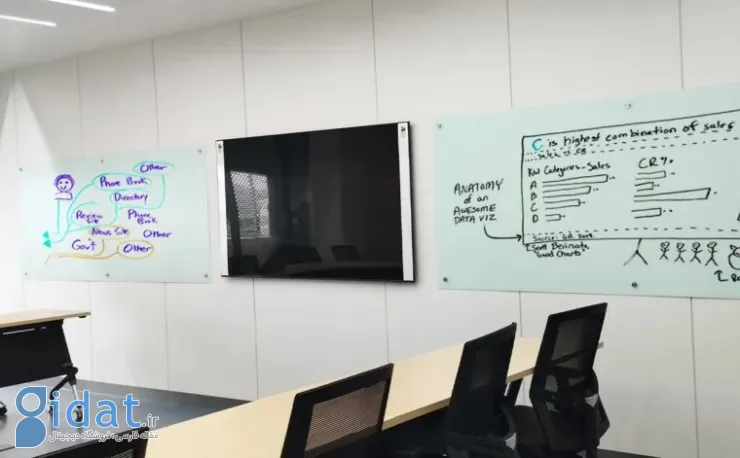 Other
Phone Book
Directory
Review Site
Phone Book
News Site
Other
Gov't
Other
ANATOMY
of an
AWESOME
DATA VIZ
C is highest combination of sales
KW Categories - Sales
CR%
A
B
C
D
Scott Berinato
Good Charts
gidat.ir
مقاله فارسی، فروشگاه دیجیتال